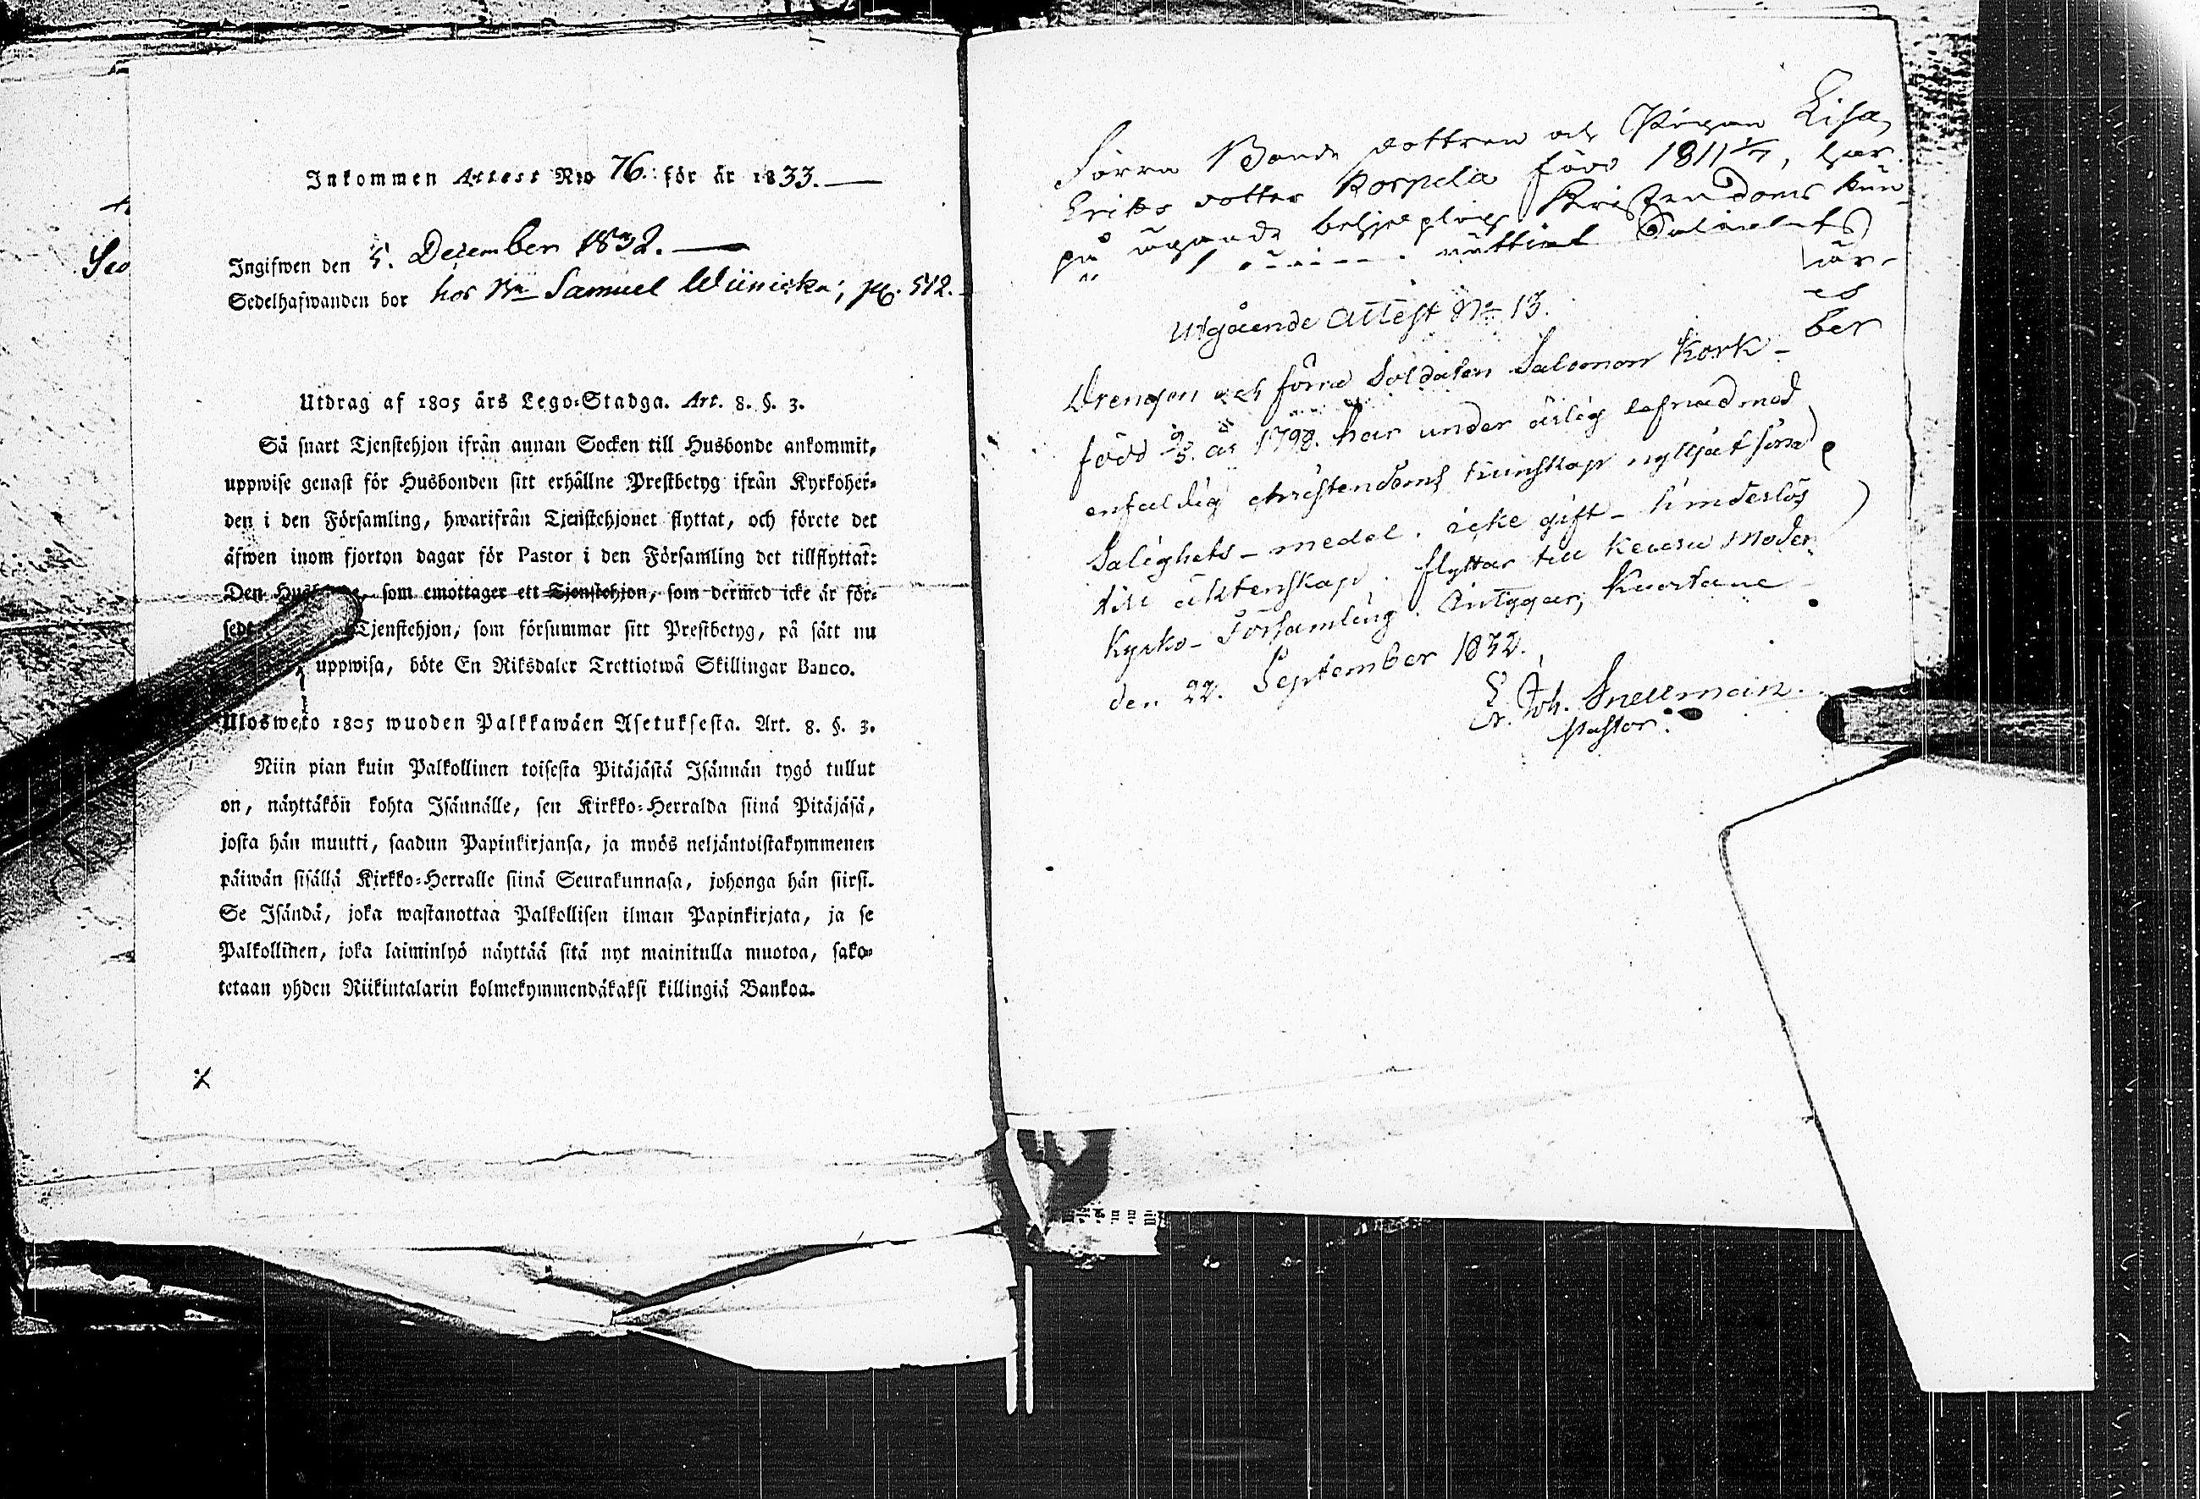 Inkommen Attest N:o 76. för år 1833.
Ingifwen den 5. December 1832.
Sedelhafwanden bor hos Bn Samuel Wiiniska; pg. 512.
Utdrag af 1805 års Lego-Stadga. Art. 8. §. 3.
Så snart Tjenstehjon ifrån annan Socken till Husbonde ankommit,
uppwise genast för Husbonden sitt erhållne Prestbetyg ifrån Kyrkoher-
den i den Församling, hwarifrån Tjenstehjonet flyttat, och förete det
äfwen inom fjorton dagar för Pastor i den Församling det tillflyttat:
Den som emottager ett Tjenstehjon, som dermed icke är för-
sedt Tjenstehjon, som försummar sitt Prestbetyg, på sätt nu
uppwisa, böte En Riksdaler Trettiotwå Skillingar Banco.
Ulosweto 1805 wuoden Palkkawäen Asetuksesta. Art. 8. §. 3.
Niin pian kuin Palkollinen toisesta Pitäjästä Isännän tygö tullut
on, näyttäkön kohta Isännälle, sen Kirkko-Herralda siinä Pitäjäsä,
josta hän muutti, saadun Papinkirjansa, ja myös neljäntoistakymmenen
päiwän sisällä Kirkko-Herralle siinä Seurakunnasa, johonga hän siirsi.
Se Isändä, joka wastanottaa Palkollisen ilman Papinkirjata, ja se
Palkollinen, joka laiminlyö näyttää sitä nyt mainitulla muotoa, sako-
tetaan yhden Riikintalarin kolmekymmendäkaksi killingiä Bankoa.
Förra Bonde dottren och Pigan Lisa
Eriks dotter Korpela född 1811 1/7, har
på ägande Kristendoms kun-
Utgående Attest No 13.
ber
Drengen och förra Soldaten Salomon Kork
född 9/5 år 1798. har under ärlig lefnad med
enfaldig christendoms kunskap nyttjat sina
Salighets-medel. icke gift- hinderlös
till äktenskap. flyttar till Moder
Kyrko-Församling. intygar, Kuortane
den 22. September 1832.
Er. Joh. Snellman.
Pastor.